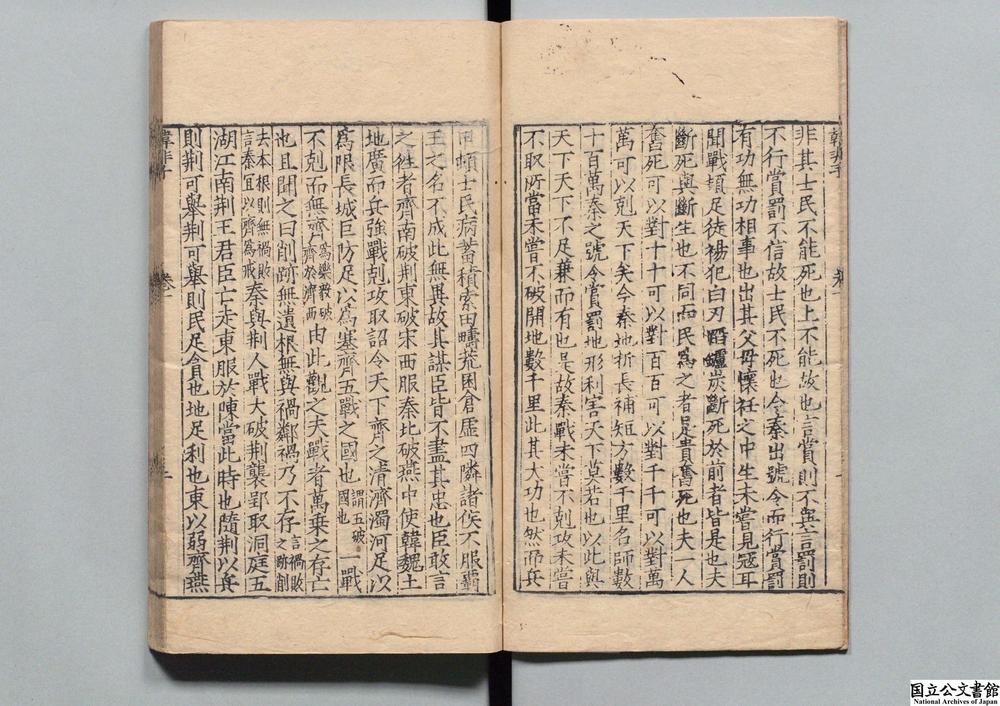 韓非子 卷一
非其士民不能死也上不能故也言賞則不與言罰則
不行賞罰不信故士民不死也今秦出號令而行賞罰
有功無功相事也出其父母懷衽之中生未嘗見寇耳
聞戰頓足徒裼犯白刃蹈鑪炭斷死於前者皆是也夫
斷死與斷生也不同而民爲之者是貴奮死也夫一人
奮死可以對十十可以對百百可以對千千可以對萬
萬可以剋天下矣今秦地折長補短方數千里名師數
十百萬秦之號令賞罰地形利害天下莫若也以此與
天下天下不足兼而有也是故秦戰未嘗不剋攻未嘗
不取所當未嘗不破開地數千里此其大功也然而兵
甲頓士民病蓄積索田疇荒囷倉虛四隣諸侯不服霸
王之名不成此無異故其謀臣皆不盡其忠也臣敢言
之徃者齊南破荆東破宋西服秦北破燕中使韓魏土
地廣而兵強戰剋攻取詔令天下齊之清濟濁河足以
爲限長城巨防足以爲塞齊五戰之國也謂五破國也一戰
不剋而無齊爲樂毅破齊於濟西由此觀之夫戰者萬乗之存亡
也且聞之曰削跡無遺根無與禍鄰禍乃不存言禍敗之跡削
去本根則無禍敗言秦宜以齊爲戒秦與荆人戰大破荆襲郢取洞庭五
湖江南荆王君臣亡走東服於陳當此時也隨荆以兵
則荆可舉荆可舉則民足貪也地足利也東以弱齊燕
韓非子 卷一
国立公文書館
National Archives of Japan